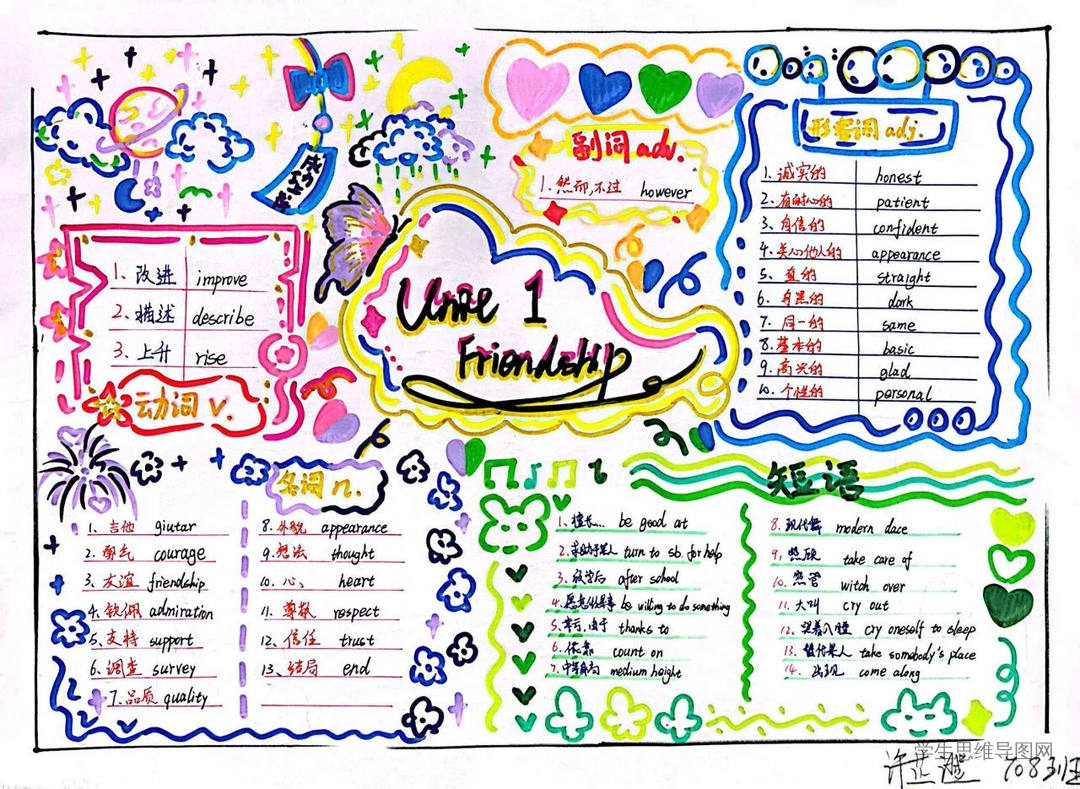 副词 adv.
1. 然却,不过 however
形容词 adj.
1. 诚实的 honest
2. 有耐心的 patient
3. 自信的 confident
4. 关心他人的 appearance
5. 直的 straight
6. 身黑的 dark
7. 同一的 same
8. 基本的 basic
9. 高兴的 glad
10. 个性的 personal
1. 改进 improve
2. 描述 describe
3. 上升 rise
动词 v.
Unite 1
Friendship
名词 n.
1. 吉他 giutar
2. 勇气 courage
3. 友谊 friendship
4. 钦佩 admiration
5. 支持 support
6. 调查 survey
7. 品质 quality
8. 外貌 appearance
9. 想法 thought
10. 心 heart
11. 尊敬 respect
12. 信任 trust
13. 结局 end
短语
1. 擅长... be good at
2. 求助于某人 turn to sb. for help
3. 放学后 after school
4. 愿意做某事 be willing to do something
5. 幸亏,由于 thanks to
6. 依靠 count on
7. 中等身高 medium height
8. 现代舞 modern dace
9. 照顾 take care of
10. 照管 witch over
11. 大叫 cry out
12. 哭着入睡 cry oneself to sleep
13. 替代某人 take somebody's place
14. 出现 come along
学生思维导图网
许 708班